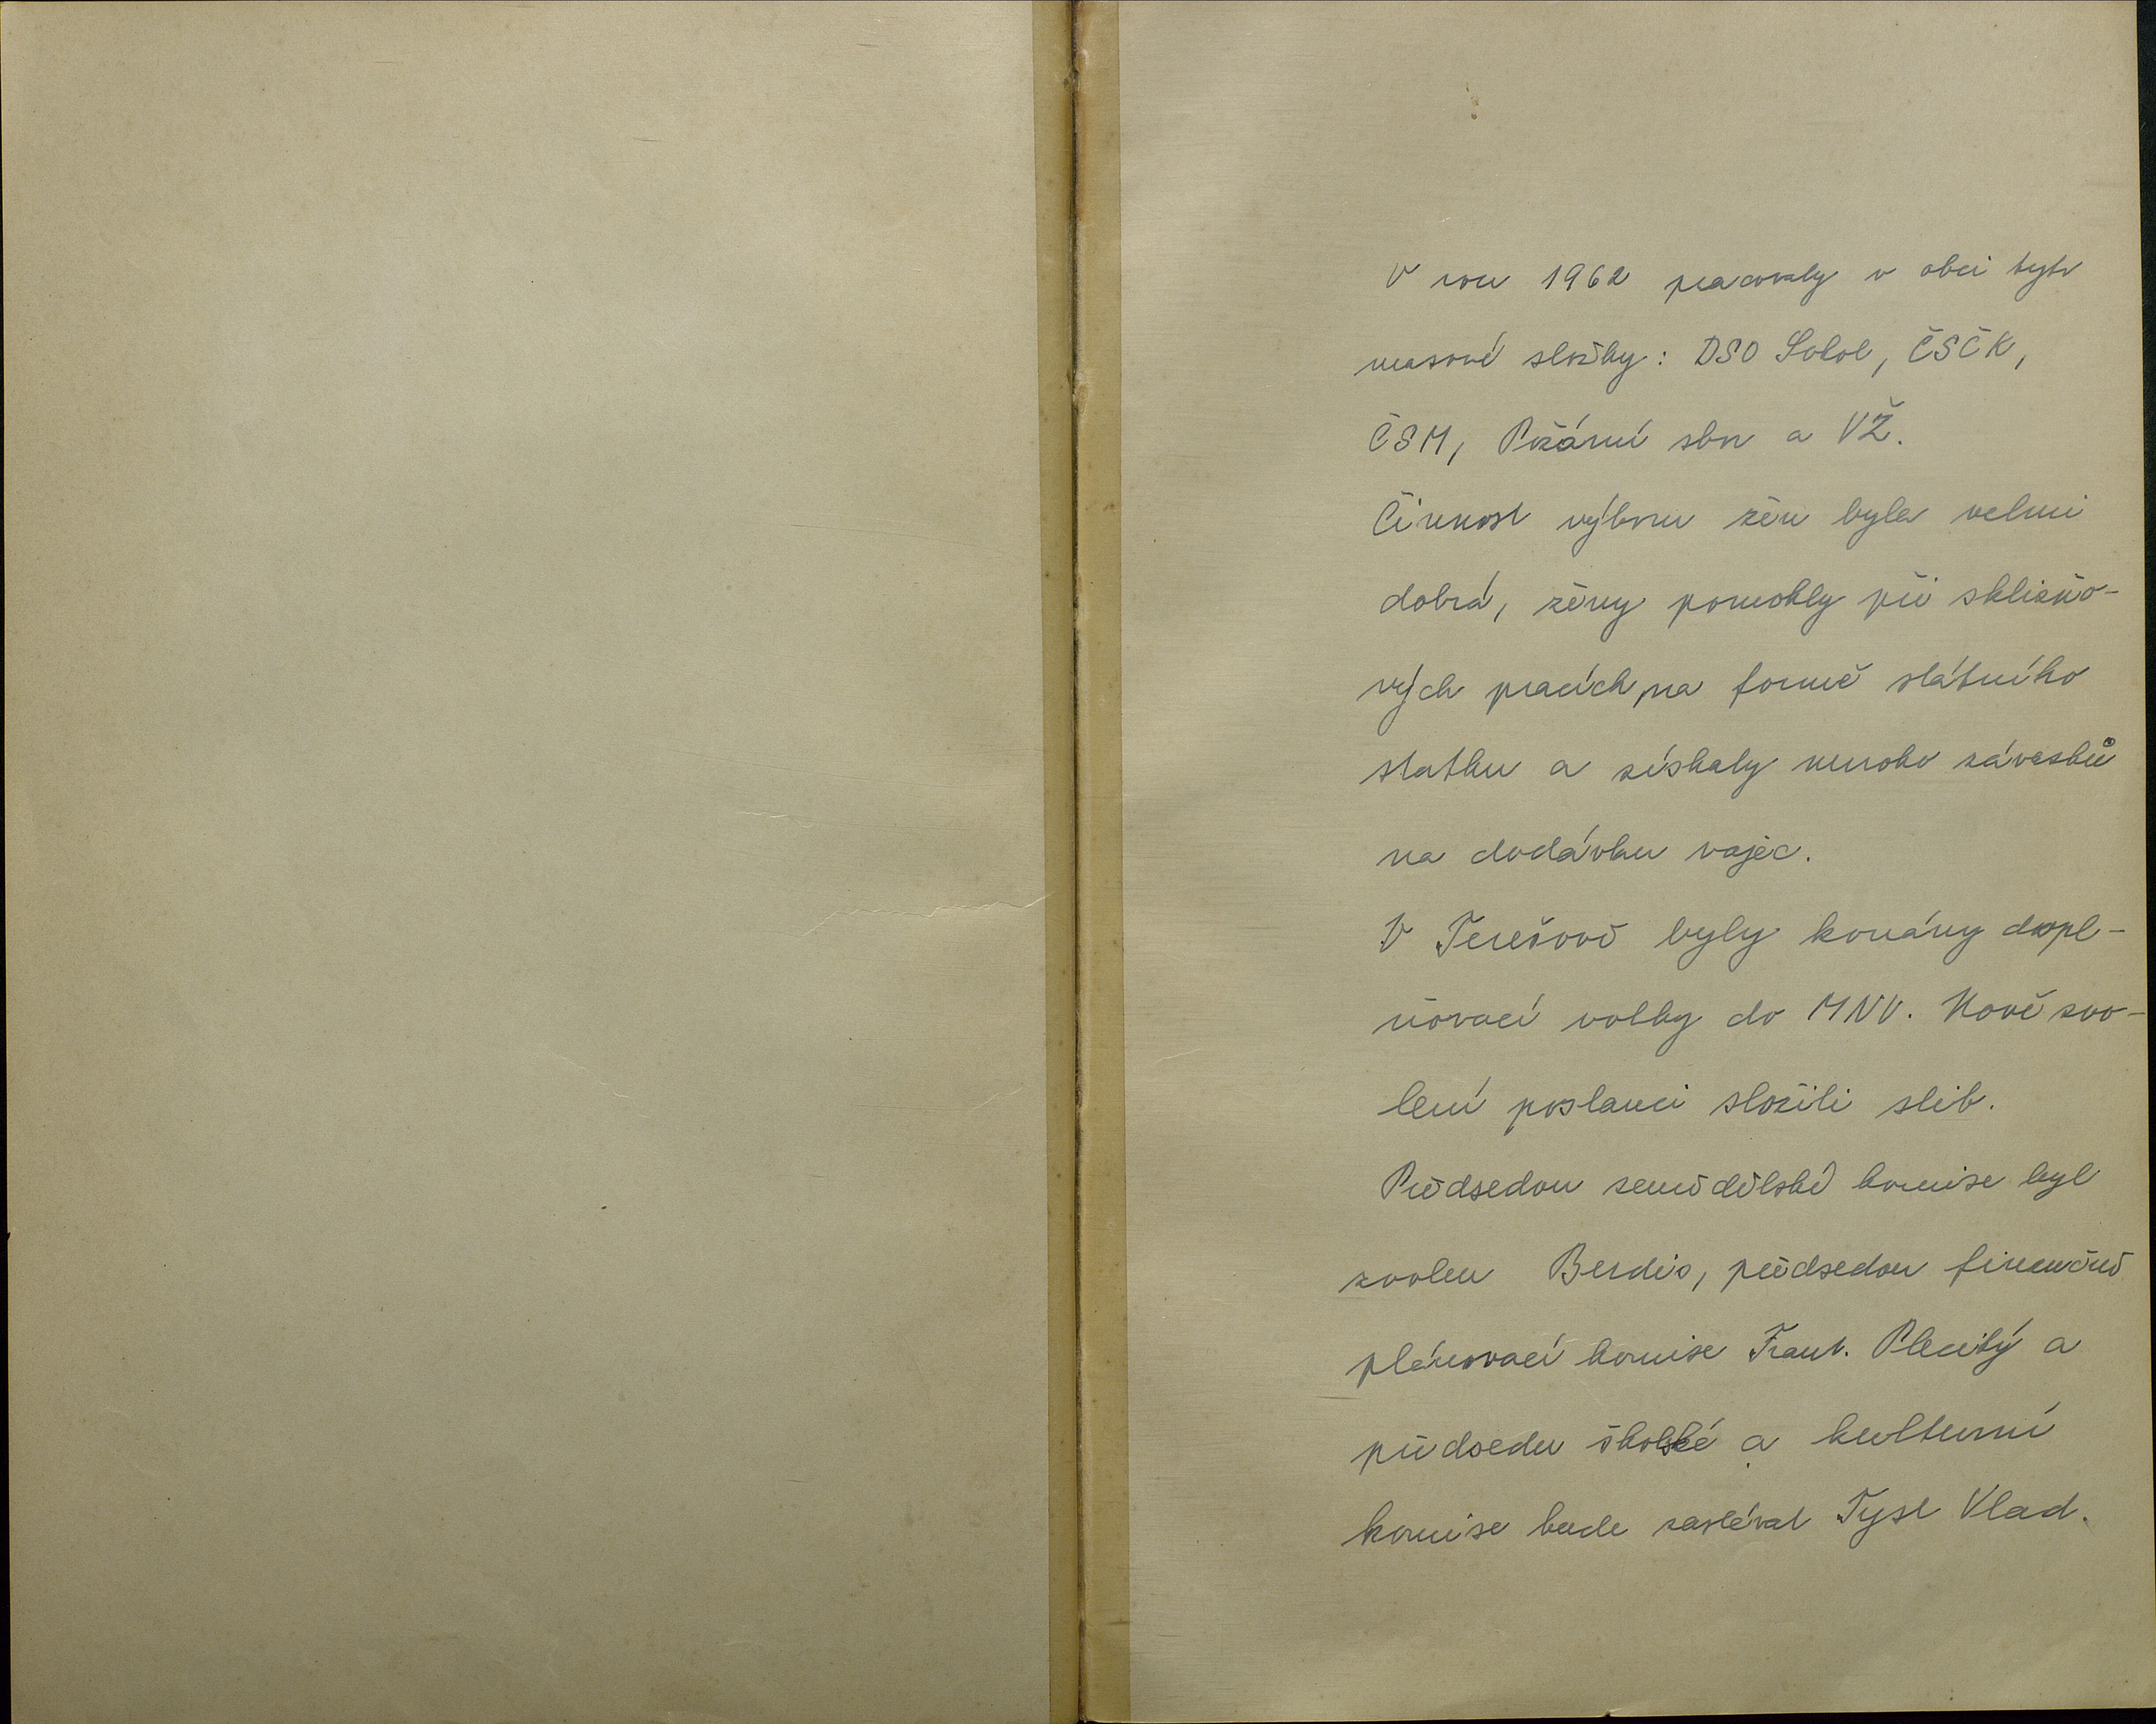 V roce 1962 pracovaly v obci tyto
masové složky: DSO Sokol, ČSČK,
ČSM, Požární sbor a VŽ.
Činnost výboru žen byla velmi
dobrá, ženy pomohly při sklizňo-
vých pracích na farmě státního
statku a získaly mnoho závazků
na dodávku vajec.
V Terešově byly konány dopl-
ňovací volby do MNV. Nově zvo-
lení poslanci složili slib.
Předsedou zemědělské komise byl
zvolen Berdis, předsedou finančně
plánovací komise Frant. Plecitý a
předsedu školské a kulturní
komise bude zastávat Tysl Vlad.